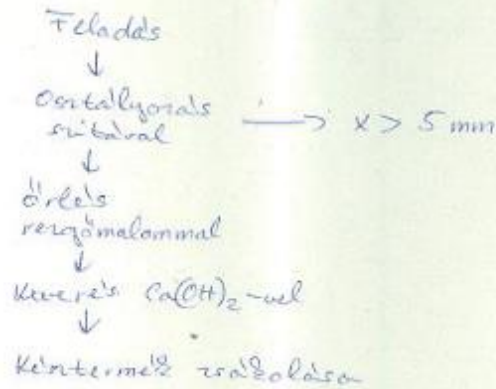 Feladás
↓
Osztályozás
szitával → x > 5 mm
↓
őrlés
rezgőmalommal
↓
Keverés Ca(OH)2-vel
↓
Késztermék zsákolása